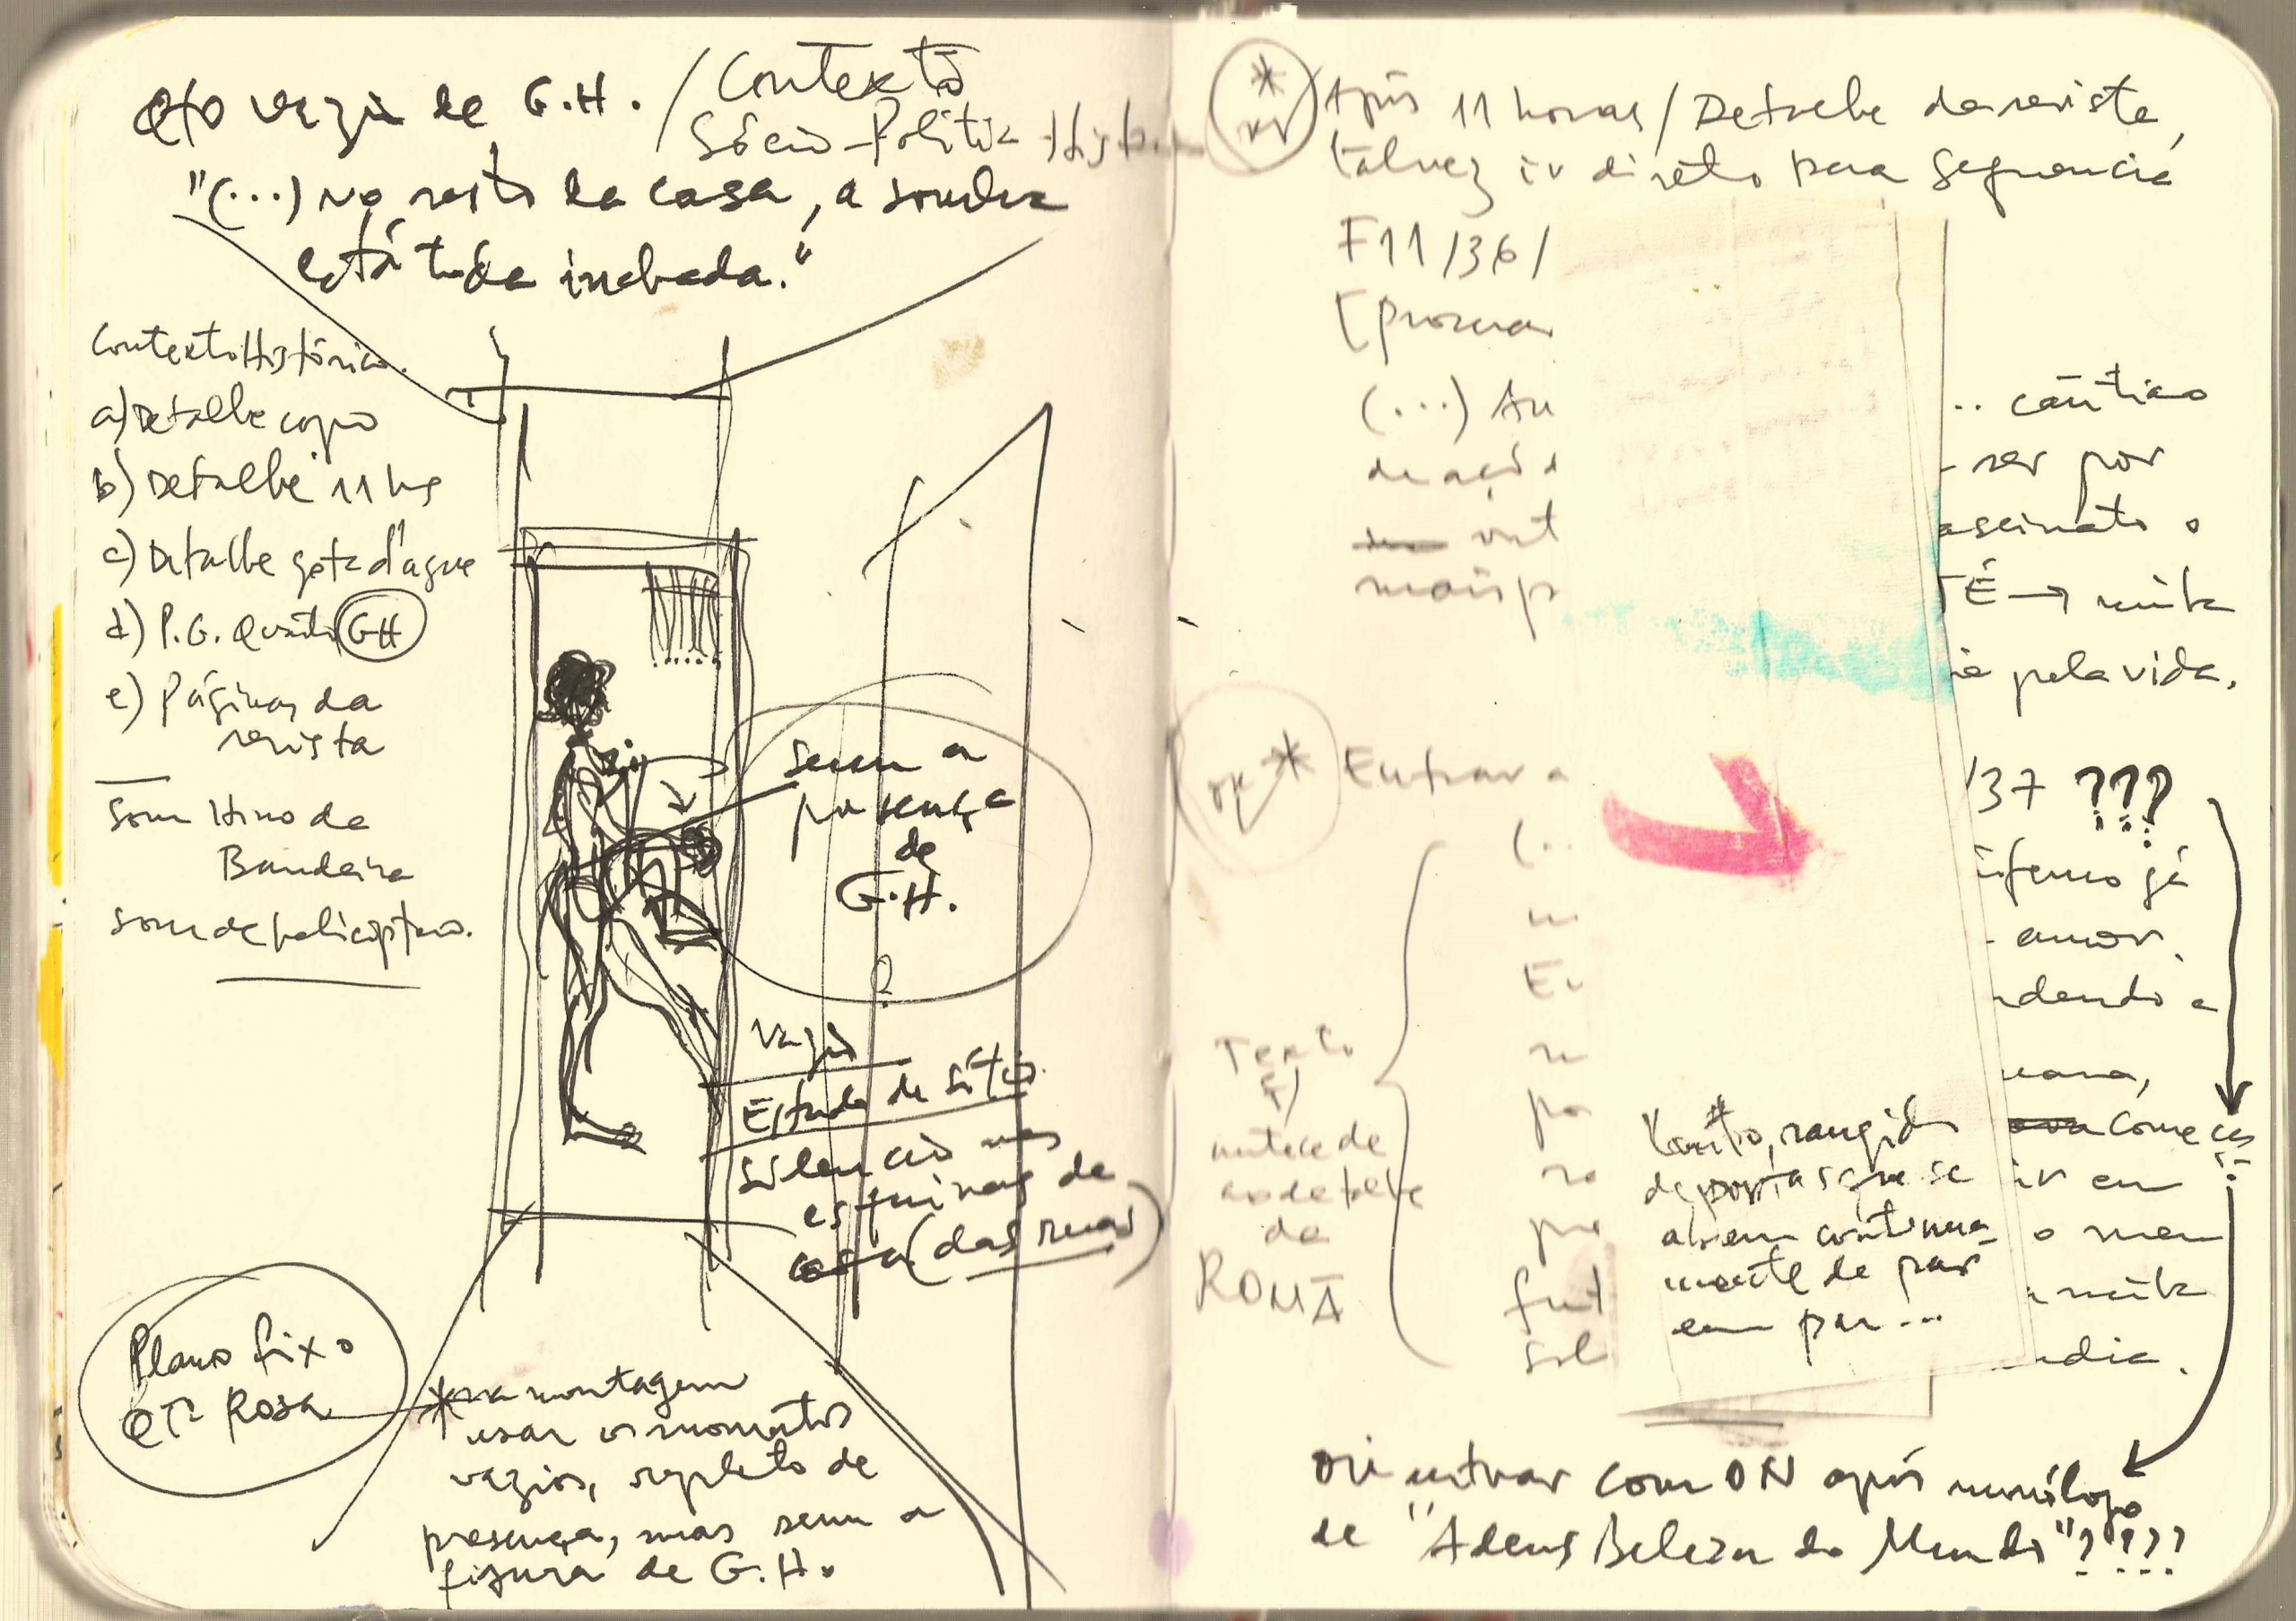 Qto vazio de G.H. / Contexto
Sócio-Político-Hist
"(...) No resto da casa, a sombra
está toda inchada."
Contexto Histórico.
a) Detalhe copo
b) Detalhe 11 hs
c) Detalhe gota d'água
d) P.G. Quarto GH
e) Páginas da
revista
Som Hino da
Bandeira
som de helicóptero.
sem a
presença
de
G.H.
?
Vazio
Estado de Sítio
Silêncio nas
esquinas de
casa (das ruas)
Plano fixo
QTO Rosa
* na montagem
usar os momentos
vazios, repleto de
presença, mas sem a
figura de G.H.
* Após 11 horas / Detalhe da revista,
talvez ir direto para sequência
F11 /36/
[procurar
(...) Au
de ação
vit
mais p
... cântico
ser por
assinato o
TÉ → minha
pela vida.
ok * Entrar a
/37 ???
(..
já
amor.
Texto
antes de
da
ROMÃ
fut
sol
ndendo a
come ces
ir em
o meu
minha
Vento, rangido
de portas que se
abrem continua-
mente de par
em par ...
ou entrar com ON após monólogo
de "Adeus Beleza do Mundo"????